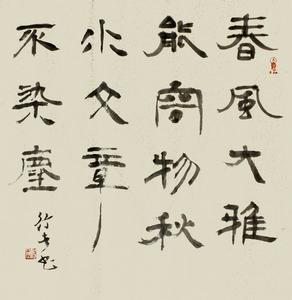 春風大雅
能容物秋
水文章
不染塵